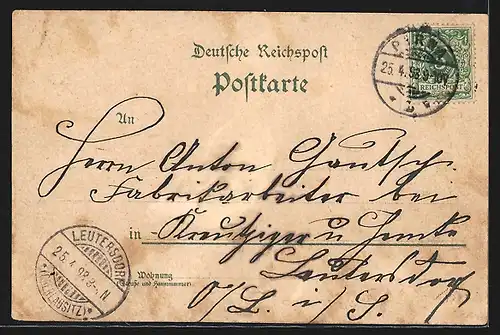 Deutsche Reichspost
Postkarte
PIRNA
25.4.98.9-10V.
REICHSPOST
An
Herrn Anton Gautsch
Fabrikarbeiter bei
in Kreutziger u Henke
LEUTERSDORF
25.4.98.
Wohnung
(Straße und Hausnummer)
Leutersdorf
O/L. i/S.